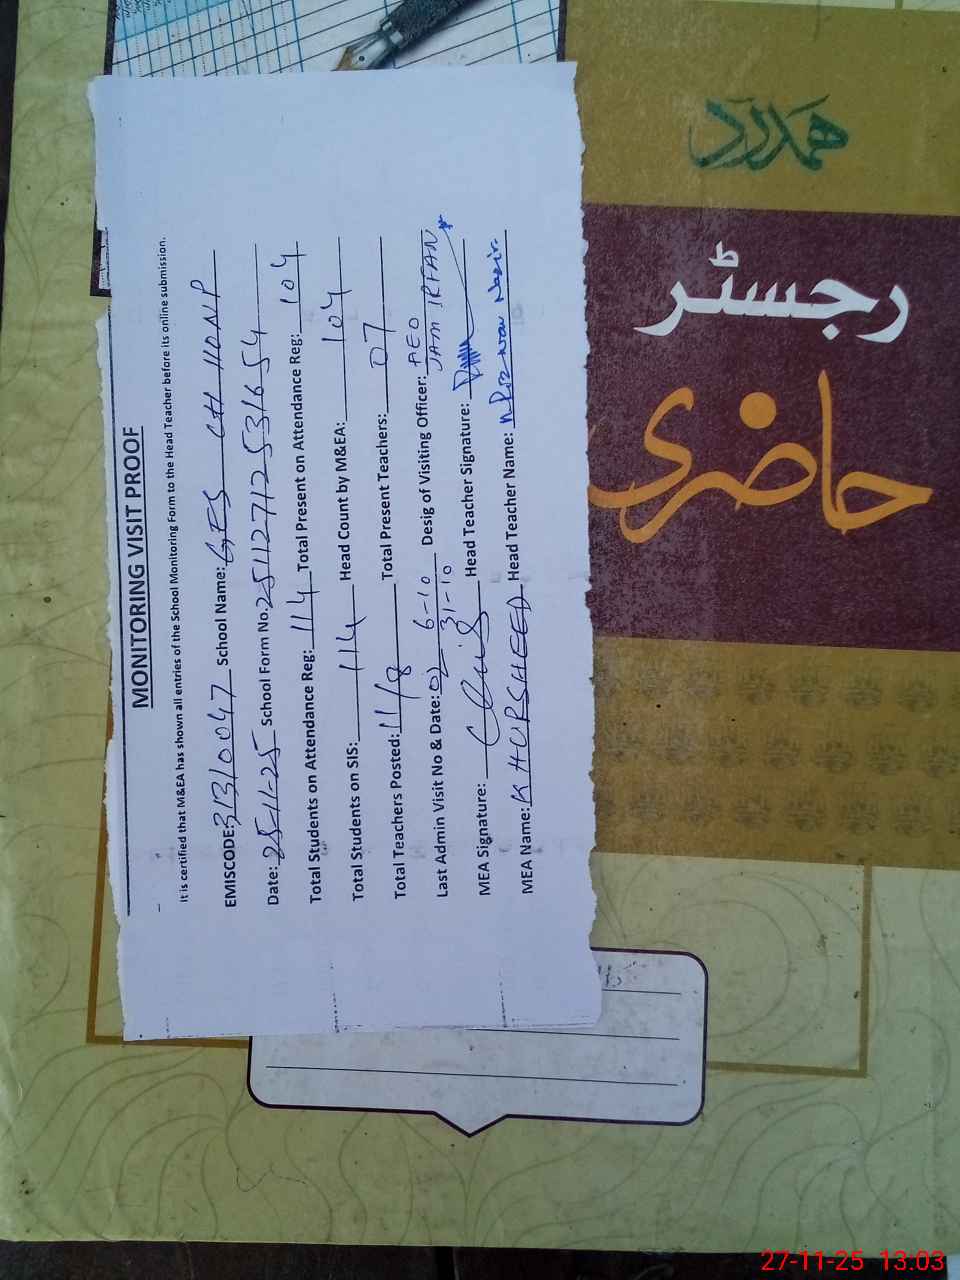 MONITORING VISIT PROOF
It is certified that M&EA has shown all entries of the School Monitoring Form to the Head Teacher before its online submission.
EMISCODE: 31310047 School Name: GES CH 110NP
Date: 25-11-25 School Form No. 251127125331654
Total Students on Attendance Reg: 114 Total Present on Attendance Reg: 104
Total Students on SIS: 114 Head Count by M&EA: 104
Total Teachers Posted: 11/8 Total Present Teachers: 07
Last Admin Visit No & Date: 02 6-10 31-10 Desig of Visiting Officer: AEO JAM IRFAN
MEA Signature: Head Teacher Signature:
MEA Name: KHURSHEED Head Teacher Name: Rizwan Nazir
ھمدرد
رجسٹر
حاضری
27-11-25 13:03